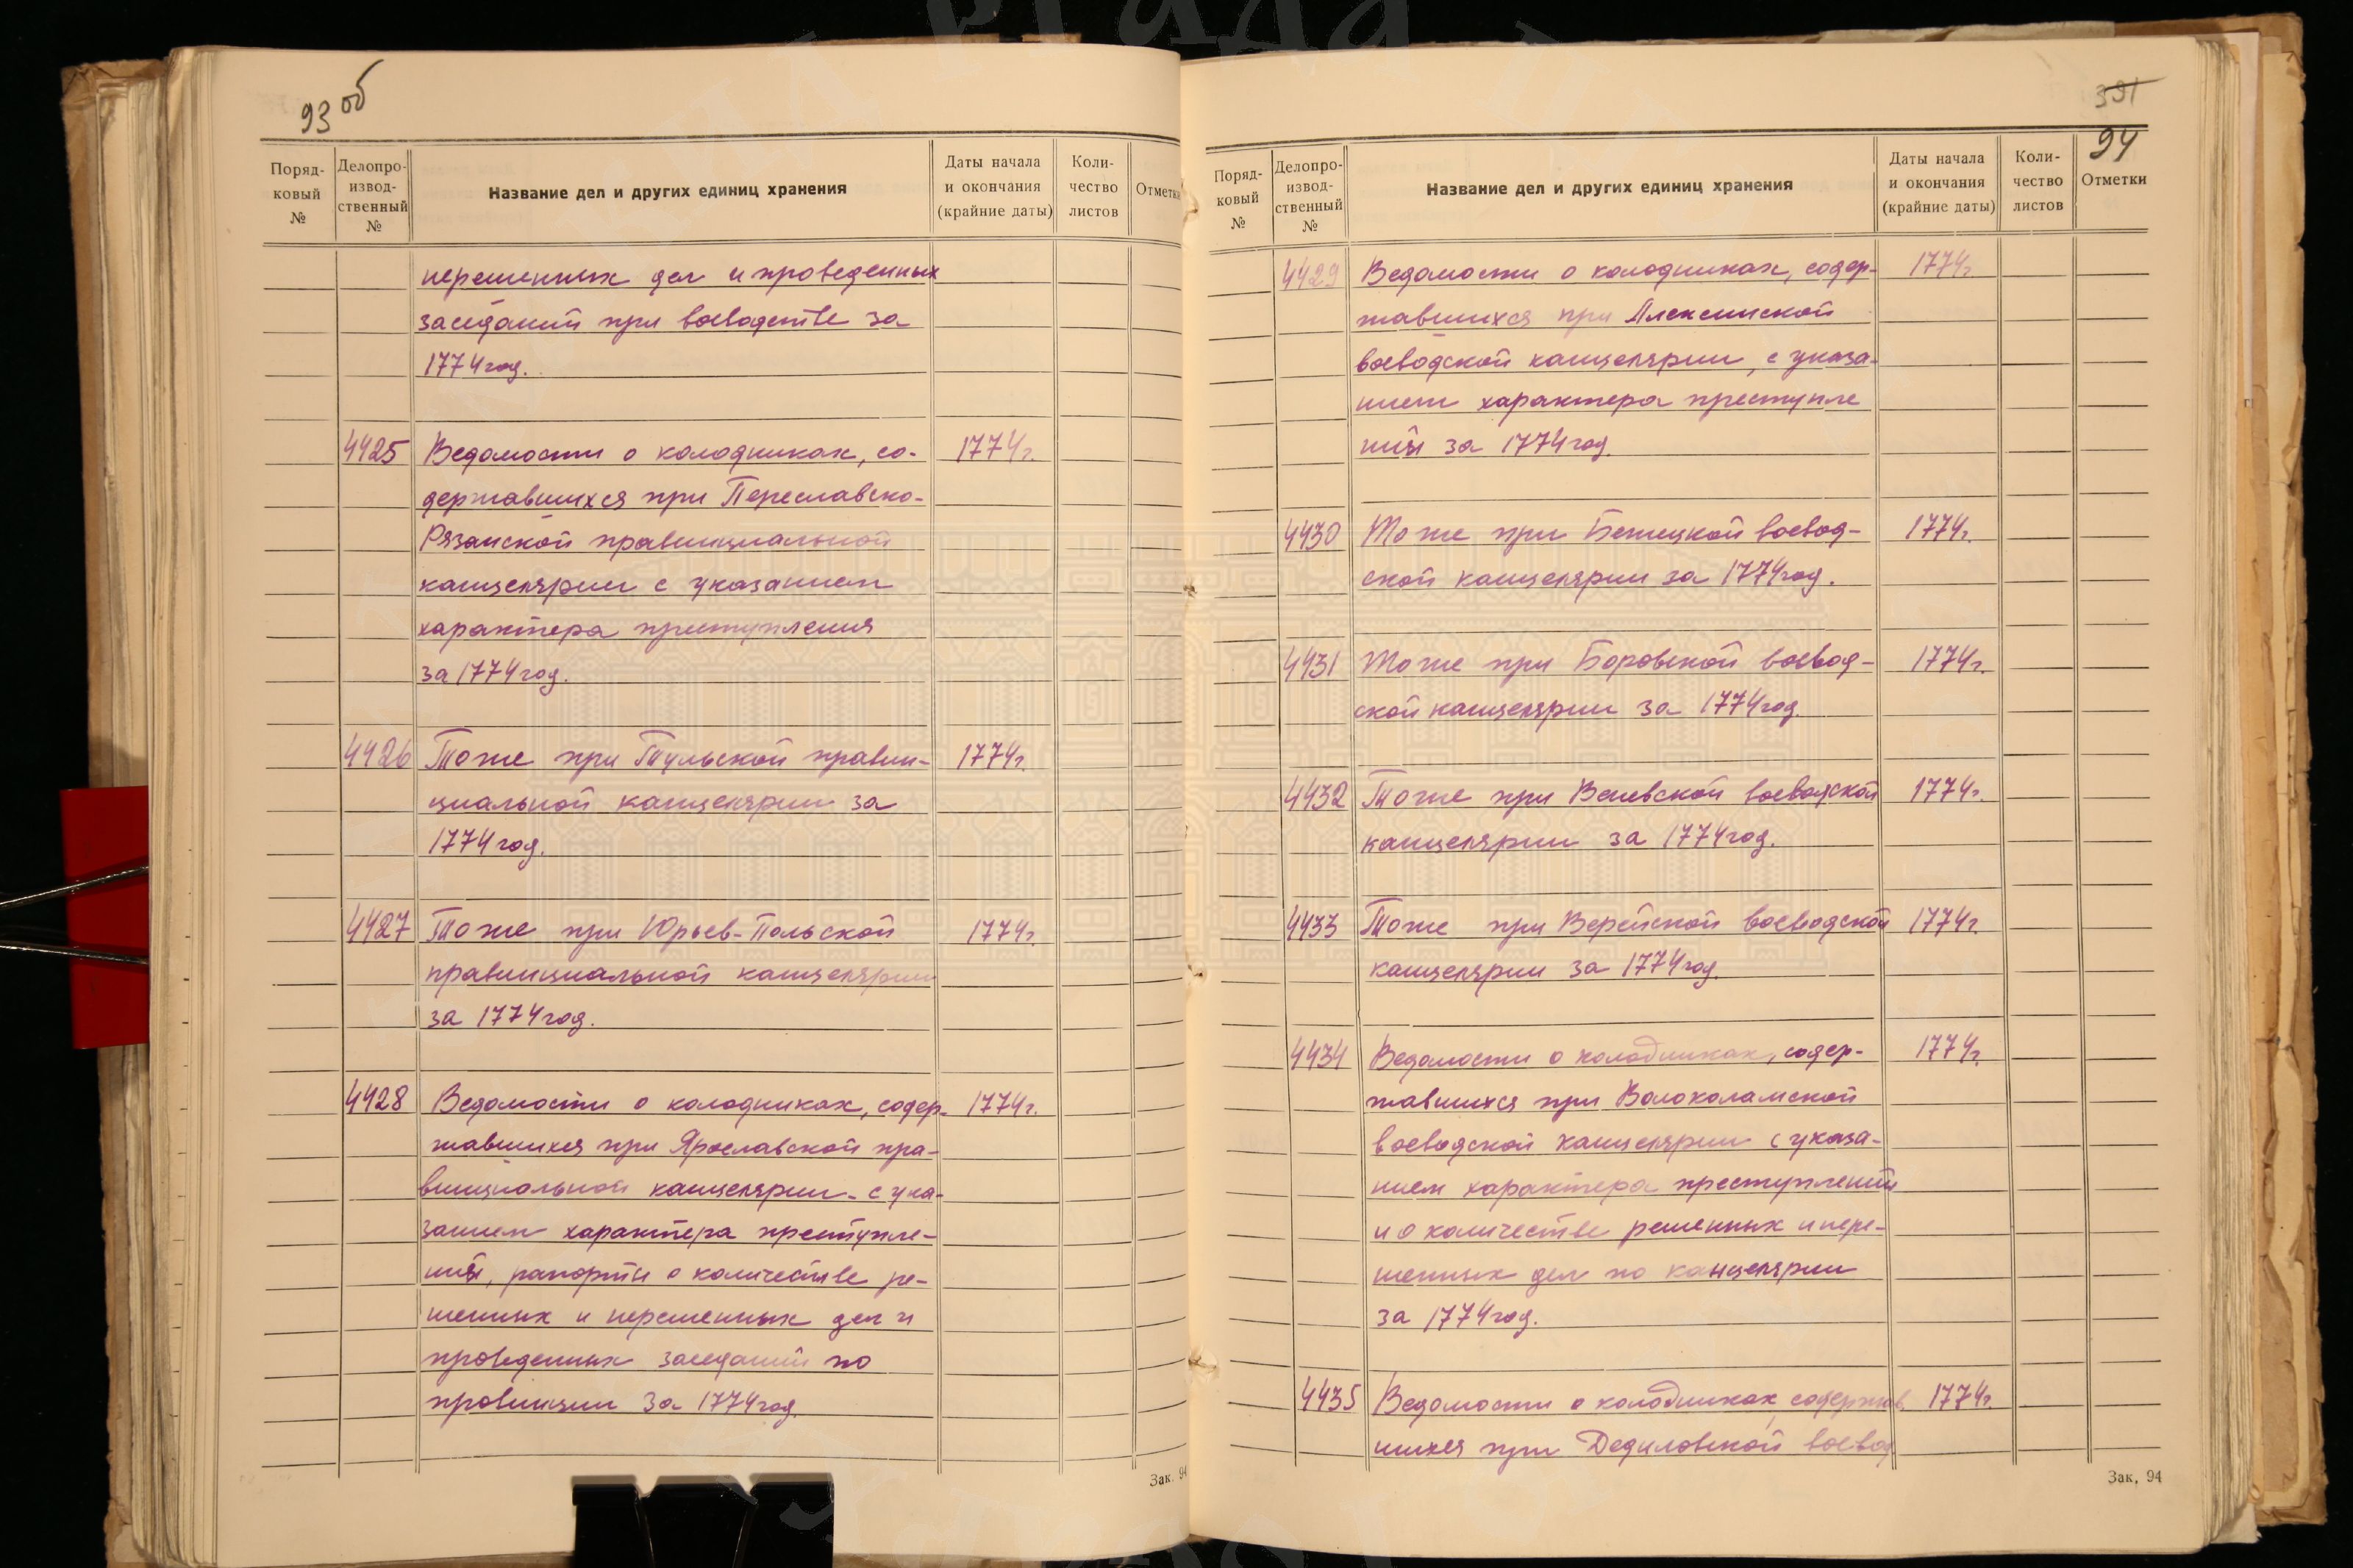 93 об
Поряд-
ковый
№
Делопро-
извод-
ственный
№
Название дел и других единиц хранения
Даты начала
и окончания
(крайние даты)
Коли-
чество
листов
Отметки
нерешенных дел и проведенных
заседаний при воеводстве за
1774 год.
4425 Ведомости о колодниках, со- 1774 г.
державшихся при Переславско-
Рязанской правинциальной
канцелярии с указанием
характера преступления
за 1774 год.
4426 То же при Тульской правин- 1774 г.
циальной канцелярии за
1774 год.
4427 То же при Юрьев-Польской 1774 г.
правинциальной канцелярии
за 1774 год.
4428 Ведомости о колодниках, содер- 1774 г.
жавшихся при Ярославской пра-
винциальной канцелярии с ука-
занием характера преступле-
ний, рапорты о количестве ре-
шенных и нерешенных дел и
проведенных заседаний по
провинции за 1774 год.
Зак. 94
391
94
Поряд-
ковый
№
Делопро-
извод-
ственный
№
Название дел и других единиц хранения
Даты начала
и окончания
(крайние даты)
Коли-
чество
листов
Отметки
4429 Ведомости о колодниках, содер- 1774 г.
жавшихся при Алексинской
воеводской канцелярии, с указа-
нием характера преступле
ний за 1774 год.
4430 То же при Бежецкой воевод- 1774 г.
ской канцелярии за 1774 год.
4431 То же при Боровской воевод- 1774 г.
ской канцелярии за 1774 год.
4432 То же при Веневской воеводской 1774 г.
канцелярии за 1774 год.
4433 То же при Верейской воеводской 1774 г.
канцелярии за 1774 год.
4434 Ведомости о колодниках, содер- 1774 г.
жавшихся при Волоколамской
воеводской канцелярии с указа-
нием характера преступлений
и о количестве решенных и нере-
шенных дел по канцелярии
за 1774 год.
4435 Ведомости о колодниках, содержав 1774 г.
шихся при Дедиловской воевод
Зак. 94